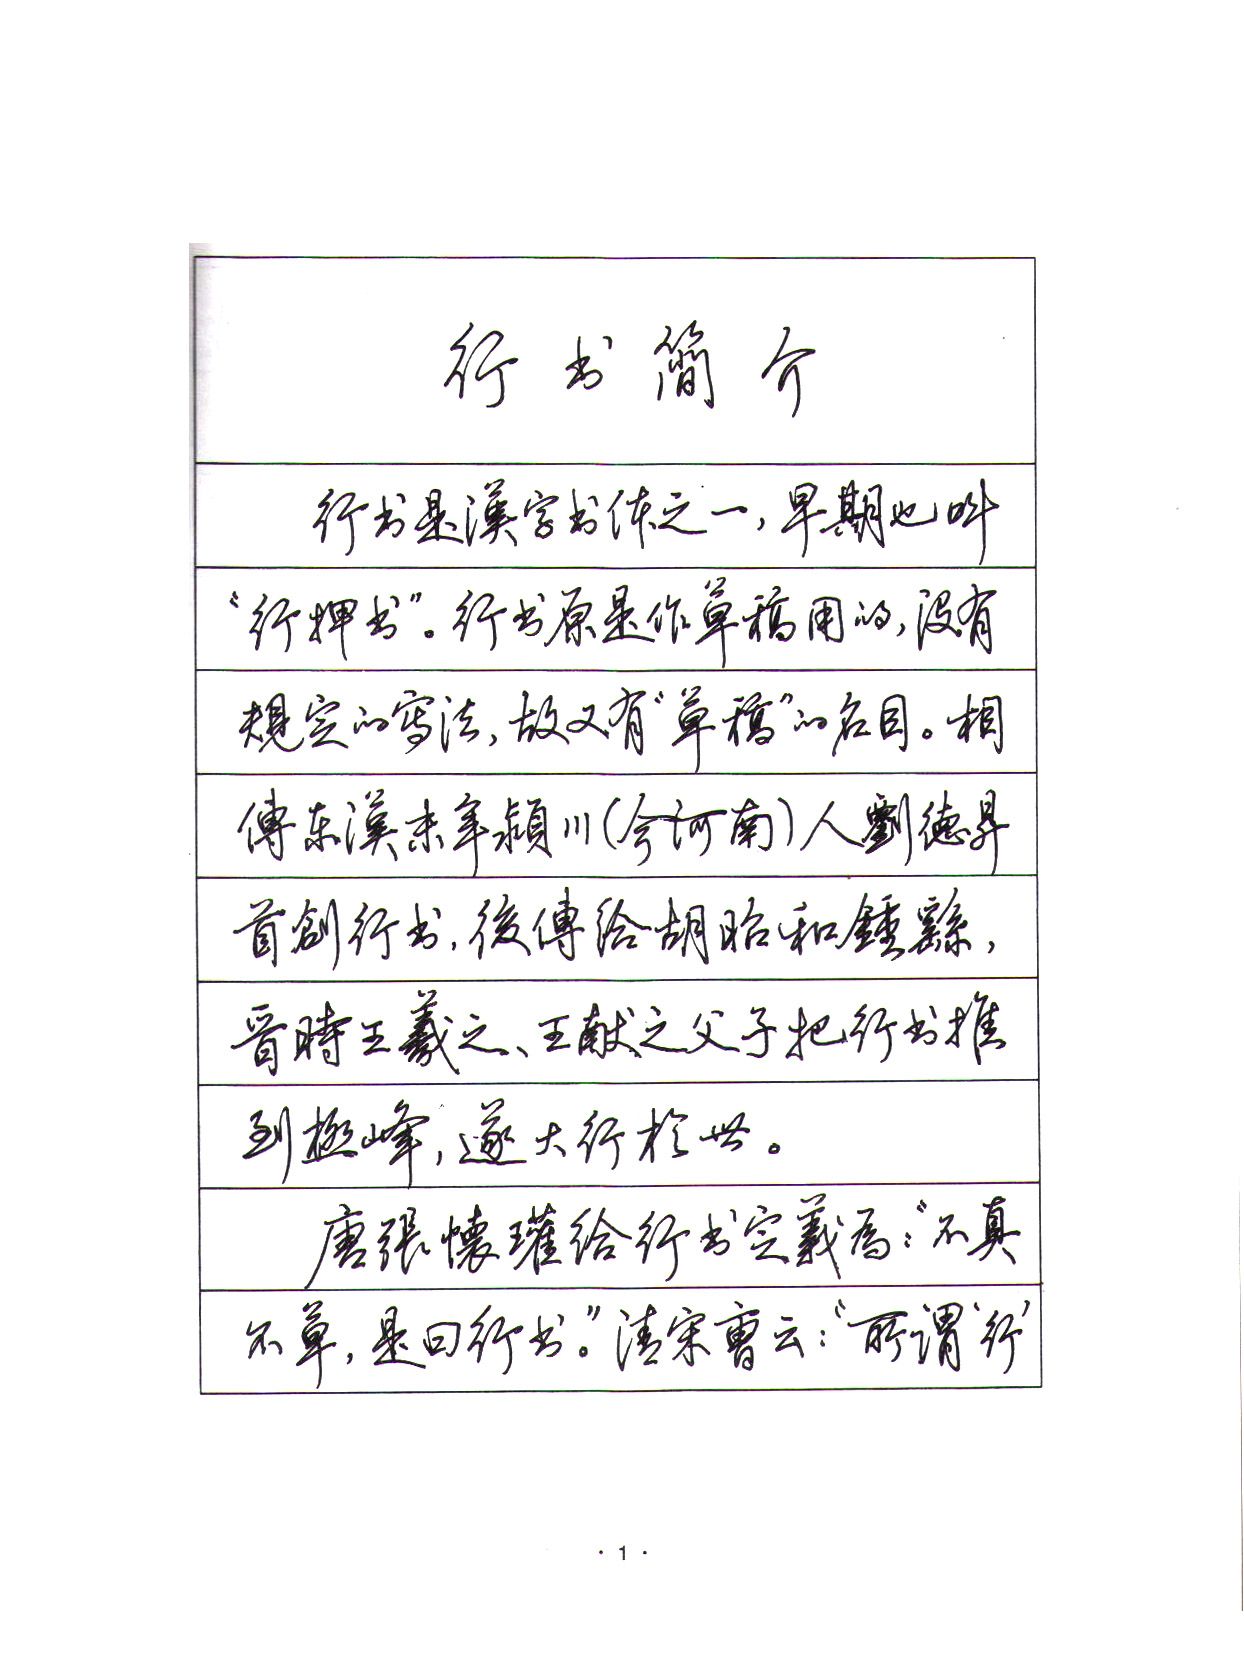 行书簡介
行书是漢字书体之一，早期也叫
“行押书”。行书原是作草稿用的，没有
規定的寫法，故又有“草稿”的名目。相
傳东漢末年潁川（今河南）人劉德昇
首創行书，後傳给胡昭和鍾繇，
晋時王羲之、王献之父子把行书推
到極峰，遂大行於世。
唐張懷瓘给行书定義為：“不真
不草，是曰行书。”清宋曹云：“所謂‘行’
· 1 ·